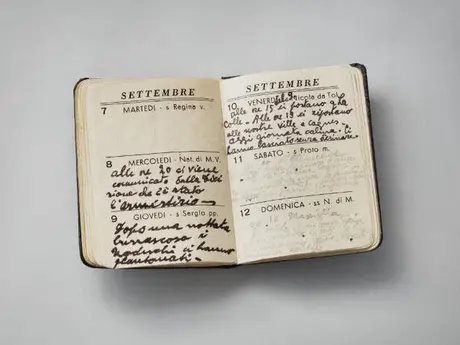 SETTEMBRE
7 MARTEDI - s Regina v.
8 MERCOLEDI - Nat. di M. V.
alle ore 20 ci viene
comunicato dalla Dire
zione che c'è stato
l'armistizio -
9 GIOVEDI - s Sergio pp.
Dopo una nottata
burrascosa i
tedeschi ci hanno
SETTEMBRE
10 VENERDI s Nicola da Tol.
alle ore 15 ci portano
Colle - Alle ore 19 ci riportano
alle nostre Ville e
oggi giornata calma - Ci
hanno lasciato senza desinare
11 SABATO - s Proto m.
12 DOMENICA - ss N. di M.